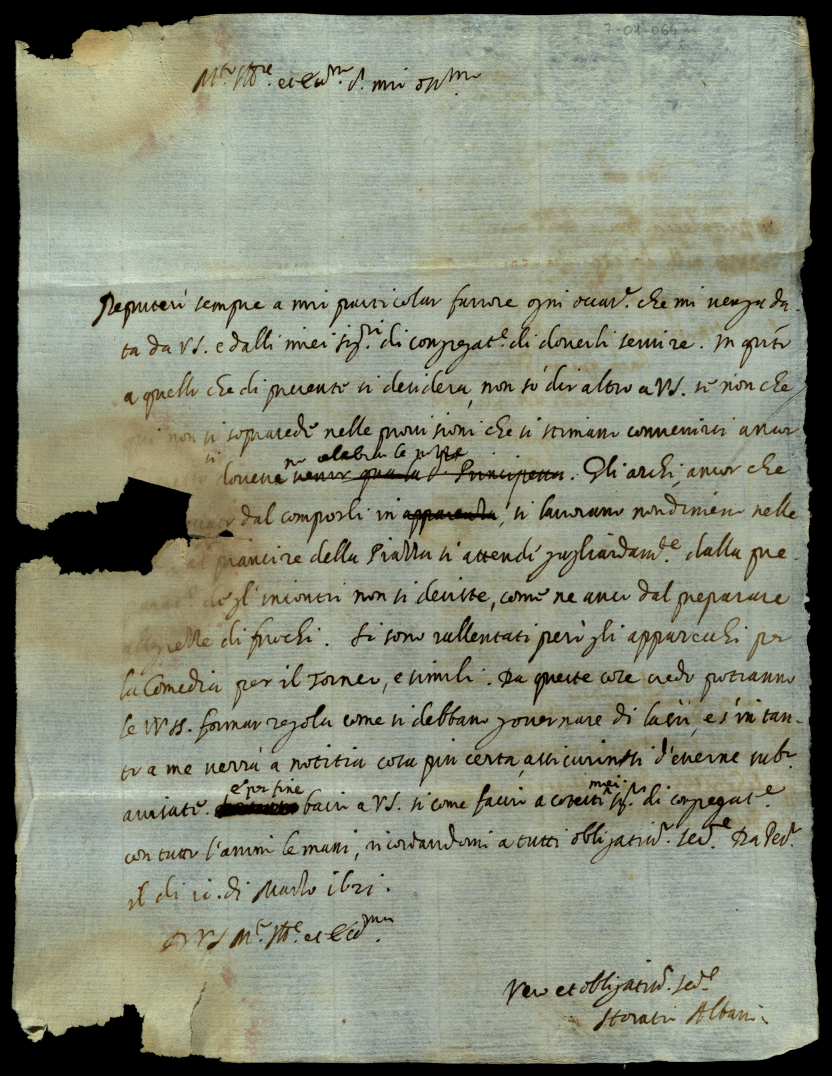 7-01-064
M.to Ill.re et Ecc.mo S.r mio oss.mo
Reputerò sempre a mio particolar favore ogni occas.e che mi venga da-
ta da VS. e dalli miei sig.ri di congregat.e di doverli servire. In q.to
a quello che di presente si desidera, non sò dir altro a VS. se non che
qui non si soprasede nelle provisioni che si stimano convenirsi ancor
si dovesse no celebrar le nozze venir qua la S. Principessa. Gli archi, ancor che
dal comporli in apparenza, si lavorano nondimeno nelle
al spianare della Piazza si attende gagliardam.te dalla pre-
degl'incontri non si desiste, come ne anco dal preparare
di fuochi. Si sono rallentati però gli apparecchi per
la Comedia per il Torneo, e simili. Da queste cose credo potranno
le VV SS. formar regola come si debbano governare di costì, e s'in tan-
to a me verrà a notitia cosa più certa, assicurinsi d'esserne sub.o
avisate. e per fine bacio a VS. si come faccio a cotesti miei sig.ri di congregat.e
con tutto l'animo le mani, ricordandomi a tutti obligatiss.o ser.e Da Pes.o
il di 10. di Marzo 1621.
D VS M.to Ill.e et Ecc.ma
Vero et obligatiss.o ser.e
Horatio Albani